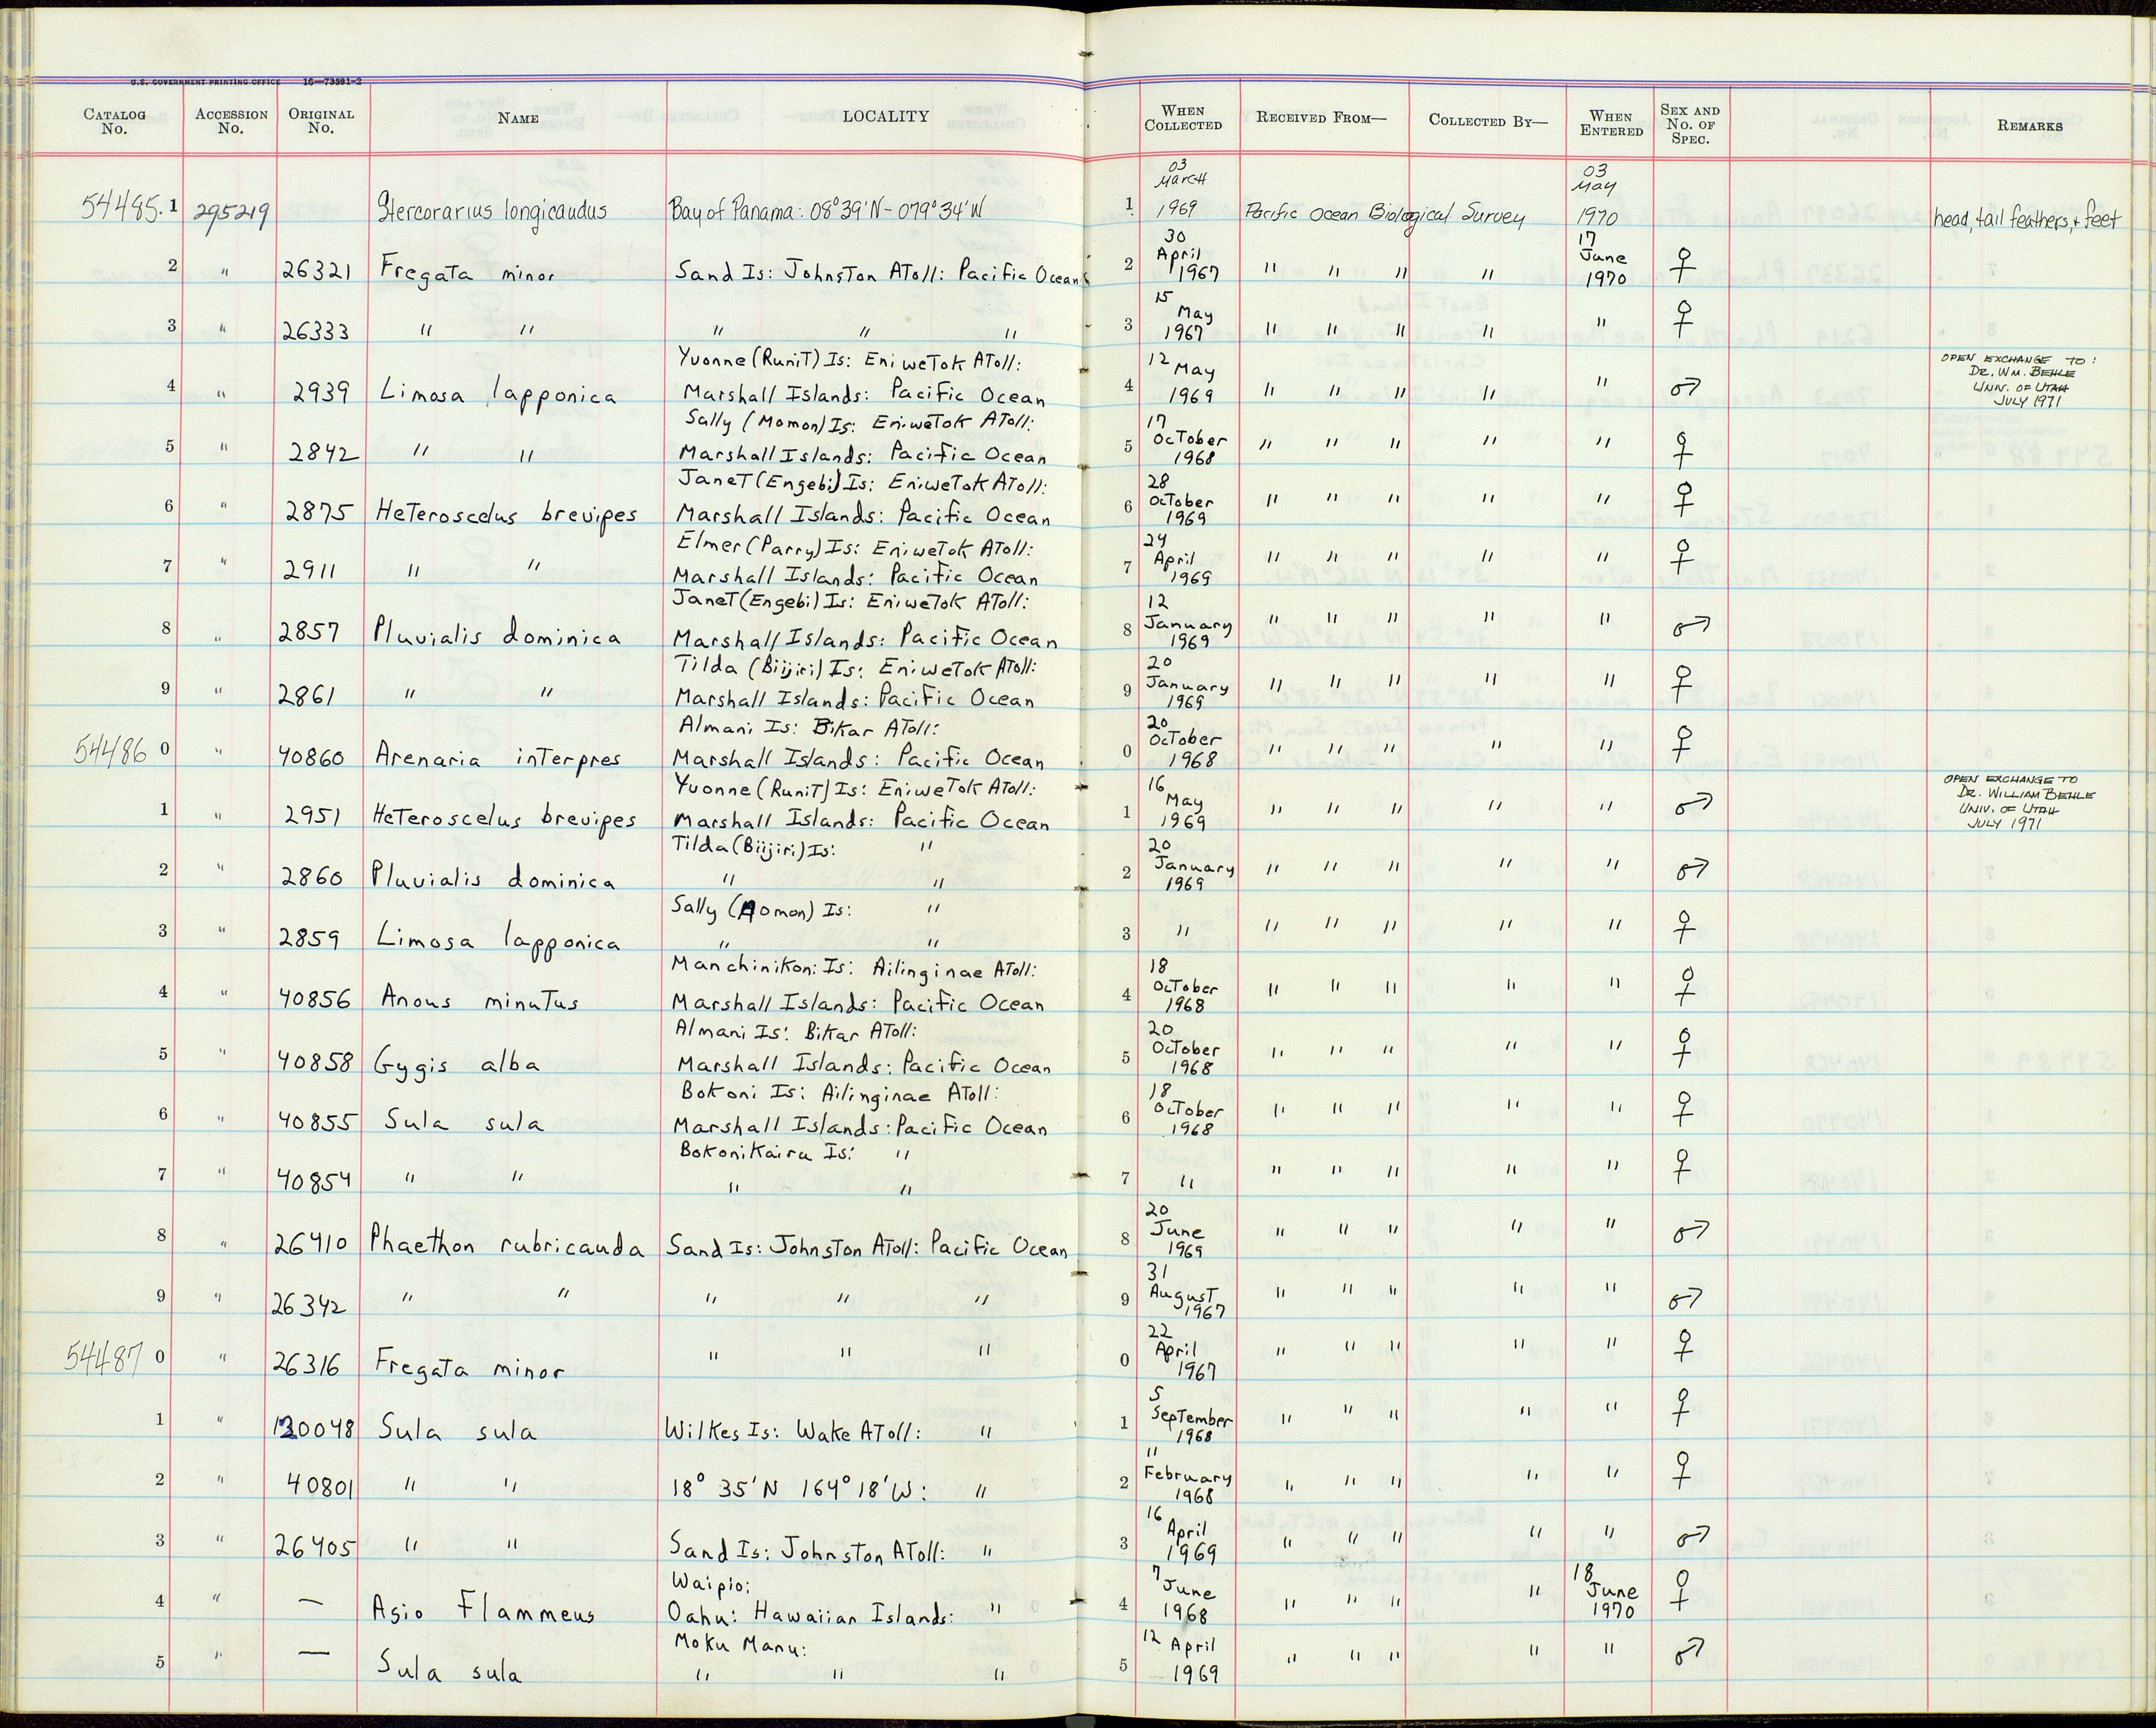 U.S. GOVERNMENT PRINTING OFFICE 16—73591-2
CATALOG No. ACCESSION No. ORIGINAL No. NAME LOCALITY WHEN COLLECTED RECEIVED FROM— COLLECTED BY— WHEN ENTERED SEX AND No. OF SPEC. REMARKS
54485.1 295219 Stercorarius longicaudus Bay of Panama: 08°39'N - 079°34'W 1 03 March 1969 Pacific Ocean Biological Survey 03 May 1970 head, tail feathers, + feet
2 " 26321 Fregata minor Sand Is: Johnston Atoll: Pacific Ocean 2 30 April 1967 " " " " 17 June 1970 ♀
3 " 26333 " " " " " 3 15 May 1967 " " " " " ♀
Yvonne (Runit) Is: Eniwetok Atoll:
4 " 2939 Limosa lapponica Marshall Islands: Pacific Ocean 4 12 May 1969 " " " " " ♂ OPEN EXCHANGE TO: DR. WM. BEHLE UNIV. OF UTAH JULY 1971
Sally (Momon) Is: Eniwetok Atoll:
5 " 2842 " " Marshall Islands: Pacific Ocean 5 17 October 1968 " " " " " ♀
Janet (Engebi) Is: Eniwetok Atoll:
6 " 2875 Heteroscelus brevipes Marshall Islands: Pacific Ocean 6 28 October 1969 " " " " " ♀
Elmer (Parry) Is: Eniwetok Atoll:
7 " 2911 " " Marshall Islands: Pacific Ocean 7 24 April 1969 " " " " " ♀
Janet (Engebi) Is: Eniwetok Atoll:
8 " 2857 Pluvialis dominica Marshall Islands: Pacific Ocean 8 12 January 1969 " " " " " ♂
Tilda (Biijiri) Is: Eniwetok Atoll:
9 " 2861 " " Marshall Islands: Pacific Ocean 9 20 January 1969 " " " " " ♀
Almani Is: Bikar Atoll:
54486 0 " 40860 Arenaria interpres Marshall Islands: Pacific Ocean 0 20 October 1968 " " " " " ♀
Yvonne (Runit) Is: Eniwetok Atoll:
1 " 2951 Heteroscelus brevipes Marshall Islands: Pacific Ocean 1 16 May 1969 " " " " " ♂ OPEN EXCHANGE TO DR. WILLIAM BEHLE UNIV. OF UTAH JULY 1971
Tilda (Biijiri) Is: "
2 " 2860 Pluvialis dominica " " 2 20 January 1969 " " " " " ♂
Sally (Aomon) Is: "
3 " 2859 Limosa lapponica " " 3 " " " " " " ♀
Manchinikon: Is: Ailinginae Atoll:
4 " 40856 Anous minutus Marshall Islands: Pacific Ocean 4 18 October 1968 " " " " " ♀
Almani Is: Bikar Atoll:
5 " 40858 Gygis alba Marshall Islands: Pacific Ocean 5 20 October 1968 " " " " " ♀
Bokoni Is: Ailinginae Atoll:
6 " 40855 Sula sula Marshall Islands: Pacific Ocean 6 18 October 1968 " " " " " ♀
Bokonikairu Is: "
7 " 40854 " " " " 7 " " " " " " ♀
8 " 26410 Phaethon rubricauda Sand Is: Johnston Atoll: Pacific Ocean 8 20 June 1969 " " " " " ♂
9 " 26342 " " " " " 9 31 August 1967 " " " " " ♂
54487 0 " 26316 Fregata minor " " " 0 22 April 1967 " " " " " ♀
1 " 120048 Sula sula Wilkes Is: Wake Atoll: " 1 5 September 1968 " " " " " ♀
2 " 40801 " " 18° 35'N 164° 18'W: " 2 11 February 1968 " " " " " ♀
3 " 26405 " " Sand Is: Johnston Atoll: " 3 16 April 1969 " " " " " ♂
Waipio:
4 " — Asio Flammeus Oahu: Hawaiian Islands: " 4 7 June 1968 " " " " 18 June 1970 ♀
Moku Manu:
5 " — Sula sula " " " 5 12 April 1969 " " " " " ♂